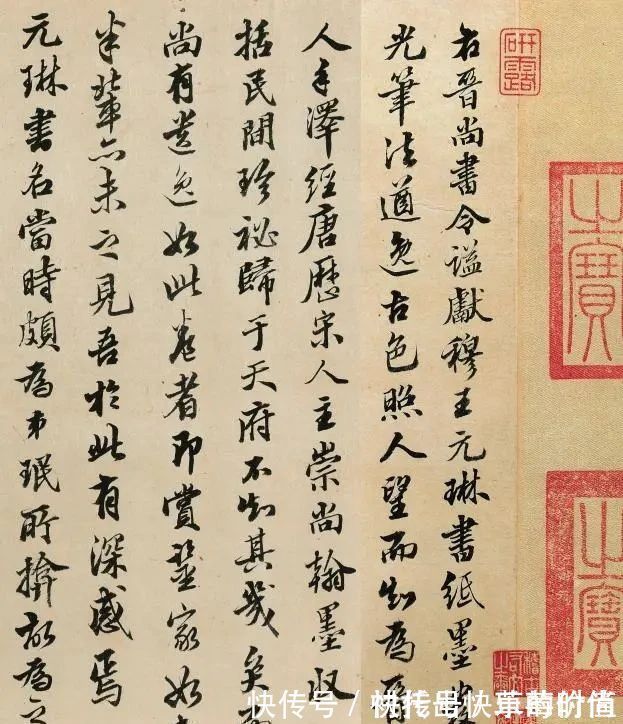 右晋尚書令謚獻穆王元琳書紙墨
光筆法遒逸古色照人望而知為
人手澤經唐歷宋人主崇尚翰墨收
括民間珍祕歸于天府不知其幾矣
尚有遺逸如此卷者即賞鑒家如
米軰亦未之見吾於此有深感焉
元琳書名當時頗為弟珉所揜故為之
研露
之寶
之寶
快传号